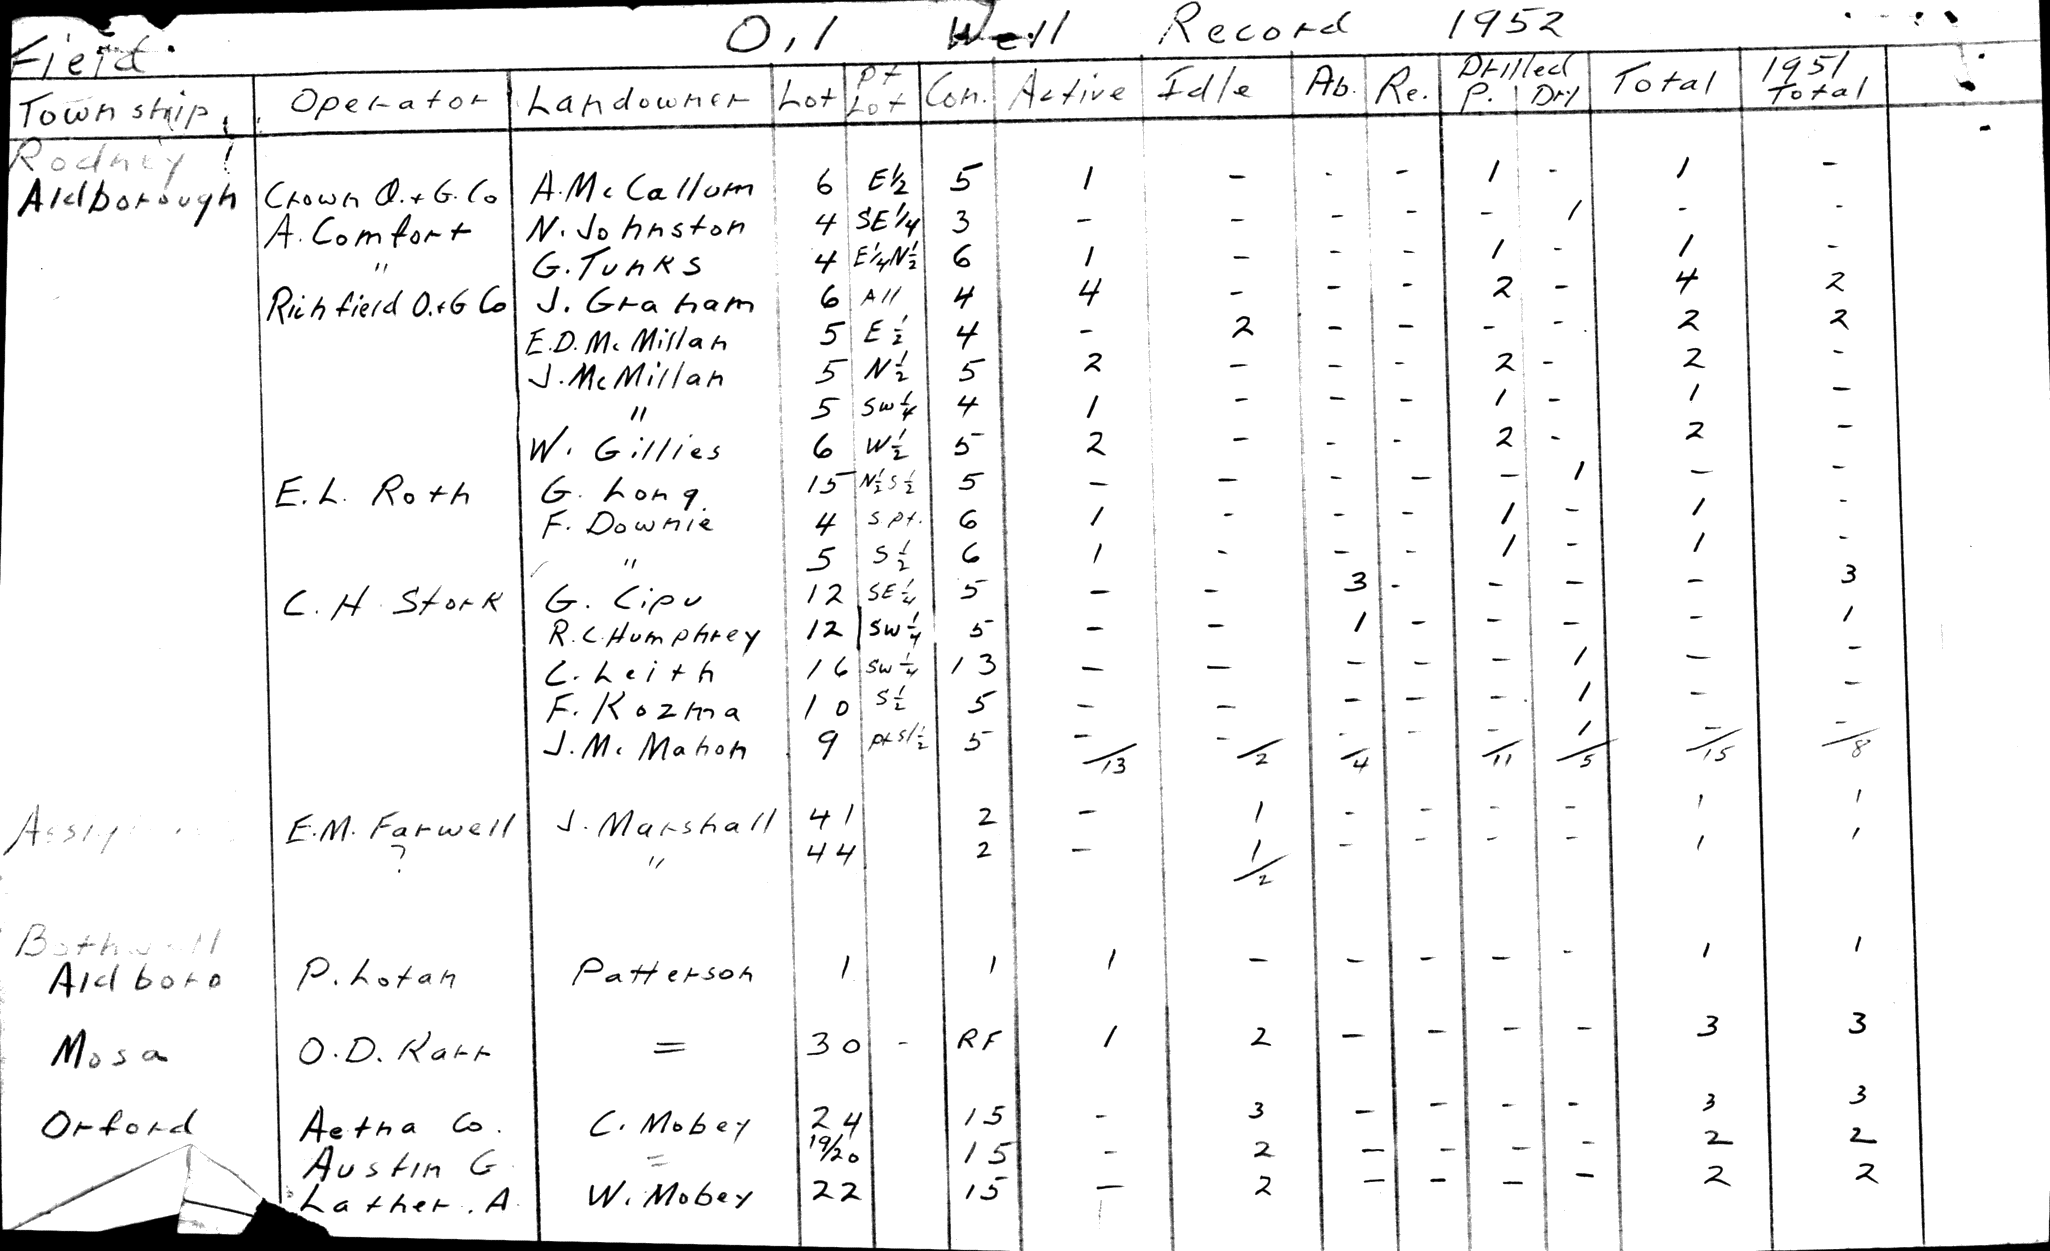 Oil Well Record 1952
Field
Township Operator Landowner Lot Pt Lot Con. Active Idle Ab. Re. Drilled P. Dry Total 1951 Total
Rodney
Aldborough Crown O. + G. Co A. McCallum 6 E½ 5 1 - - - 1 - 1 -
A. Comfort N. Johnston 4 SE¼ 3 - - - - - 1 - -
" G. Tunks 4 E¼N½ 6 1 - - - 1 - 1 -
Richfield O. + G Co J. Graham 6 All 4 4 - - - 2 - 4 2
E.D. McMillan 5 E½ 4 - 2 - - - - 2 2
J. McMillan 5 N½ 5 2 - - - 2 - 2 -
" 5 SW¼ 4 1 - - - 1 - 1 -
W. Gillies 6 W½ 5 2 - - - 2 - 2 -
E. L. Roth G. Long 15 N½S½ 5 - - - - - 1 - -
F. Downie 4 S pt. 6 1 - - - 1 - 1 -
" 5 S½ 6 1 - - - 1 - 1 -
C. H. Stork G. Cipu 12 SE¼ 5 - - 3 - - - - 3
R. C. Humphrey 12 SW¼ 5 - - 1 - - - - 1
C. Leith 16 SW¼ 13 - - - - - 1 - -
F. Kozma 10 S½ 5 - - - - - 1 - -
J. McMahon 9 pt S½ 5 - - - - - 1 - -
/13 /2 /4 /11 /5 /15 /8
E.M. Farwell J. Marshall 41 2 - 1 - - - - 1 1
? " 44 2 - 1 - - - - 1 1
/2
Bothwell
Aldboro P. Lotan Patterson 1 1 1 - - - - - 1 1
Mosa O. D. Karr = 30 - RF 1 2 - - - - 3 3
Orford Aetna Co. C. Mobey 24 15 - 3 - - - - 3 3
Austin G = 19/20 15 - 2 - - - - 2 2
Lather. A. W. Mobey 22 15 - 2 - - - - 2 2